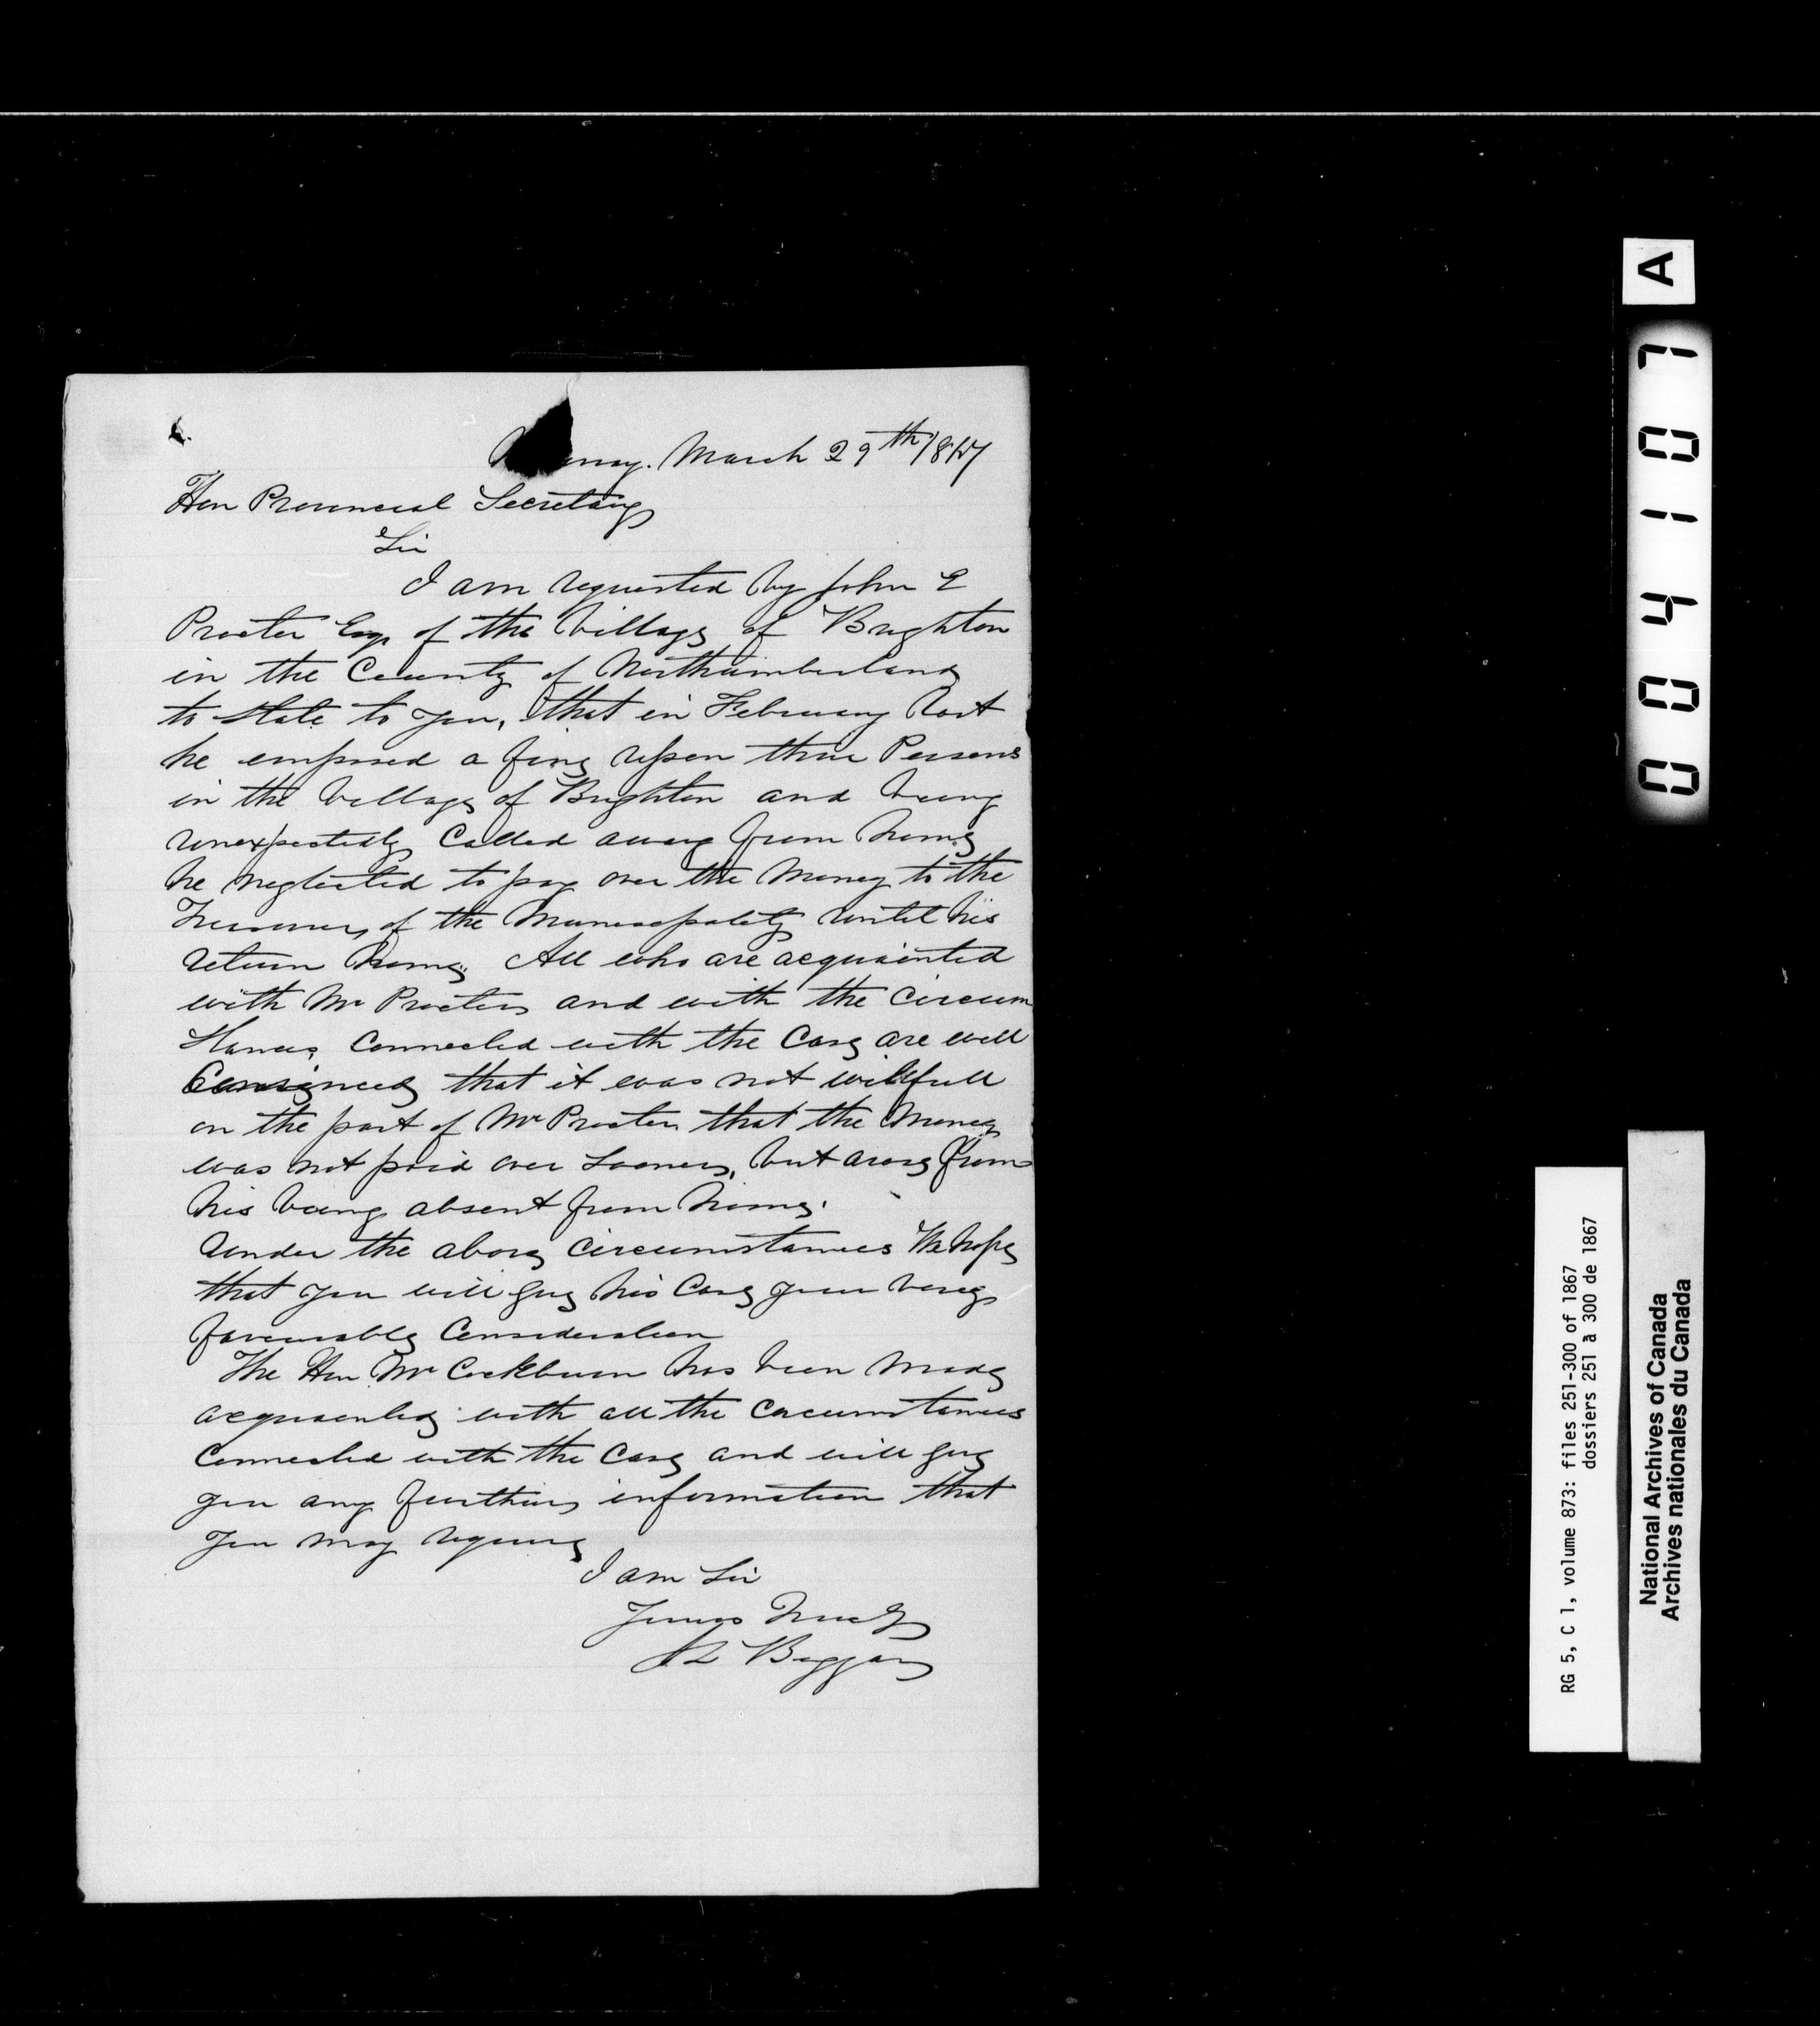 March 29th 1867
Hon Provincial Secretary
Sir
I am requested by John E
Procter Esqr of the Village of Brighton
in the County of Northumberland
to state to you, that in February last
he emposed a fine upon three Persons
in the Village of Brighton and being
unexpectedly Called away from home
he neglected to pay over the Money to the
Treasurer of the Municipality until his
return home. All who are acquainted
with Mr Procter and with the Circum
stances Connected with the Case are well
Convinced that it was not willfull
on the part of Mr Procter that the Money
was not paid over sooner, but arose from
his being absent from home.
Under the above Circumstances We hope
that you will give his Case your very
favourable Consideration
The Hon Mr Cockburn has been made
acquainted with all the Circumstances
Connected with the Case and will give
you any further information that
you may require
I am Sir
Yours Truly
J L Biggar
A
004107
RG 5, C 1, volume 873: files 251-300 of 1867
dossiers 251 à 300 de 1867
National Archives of Canada
Archives nationales du Canada